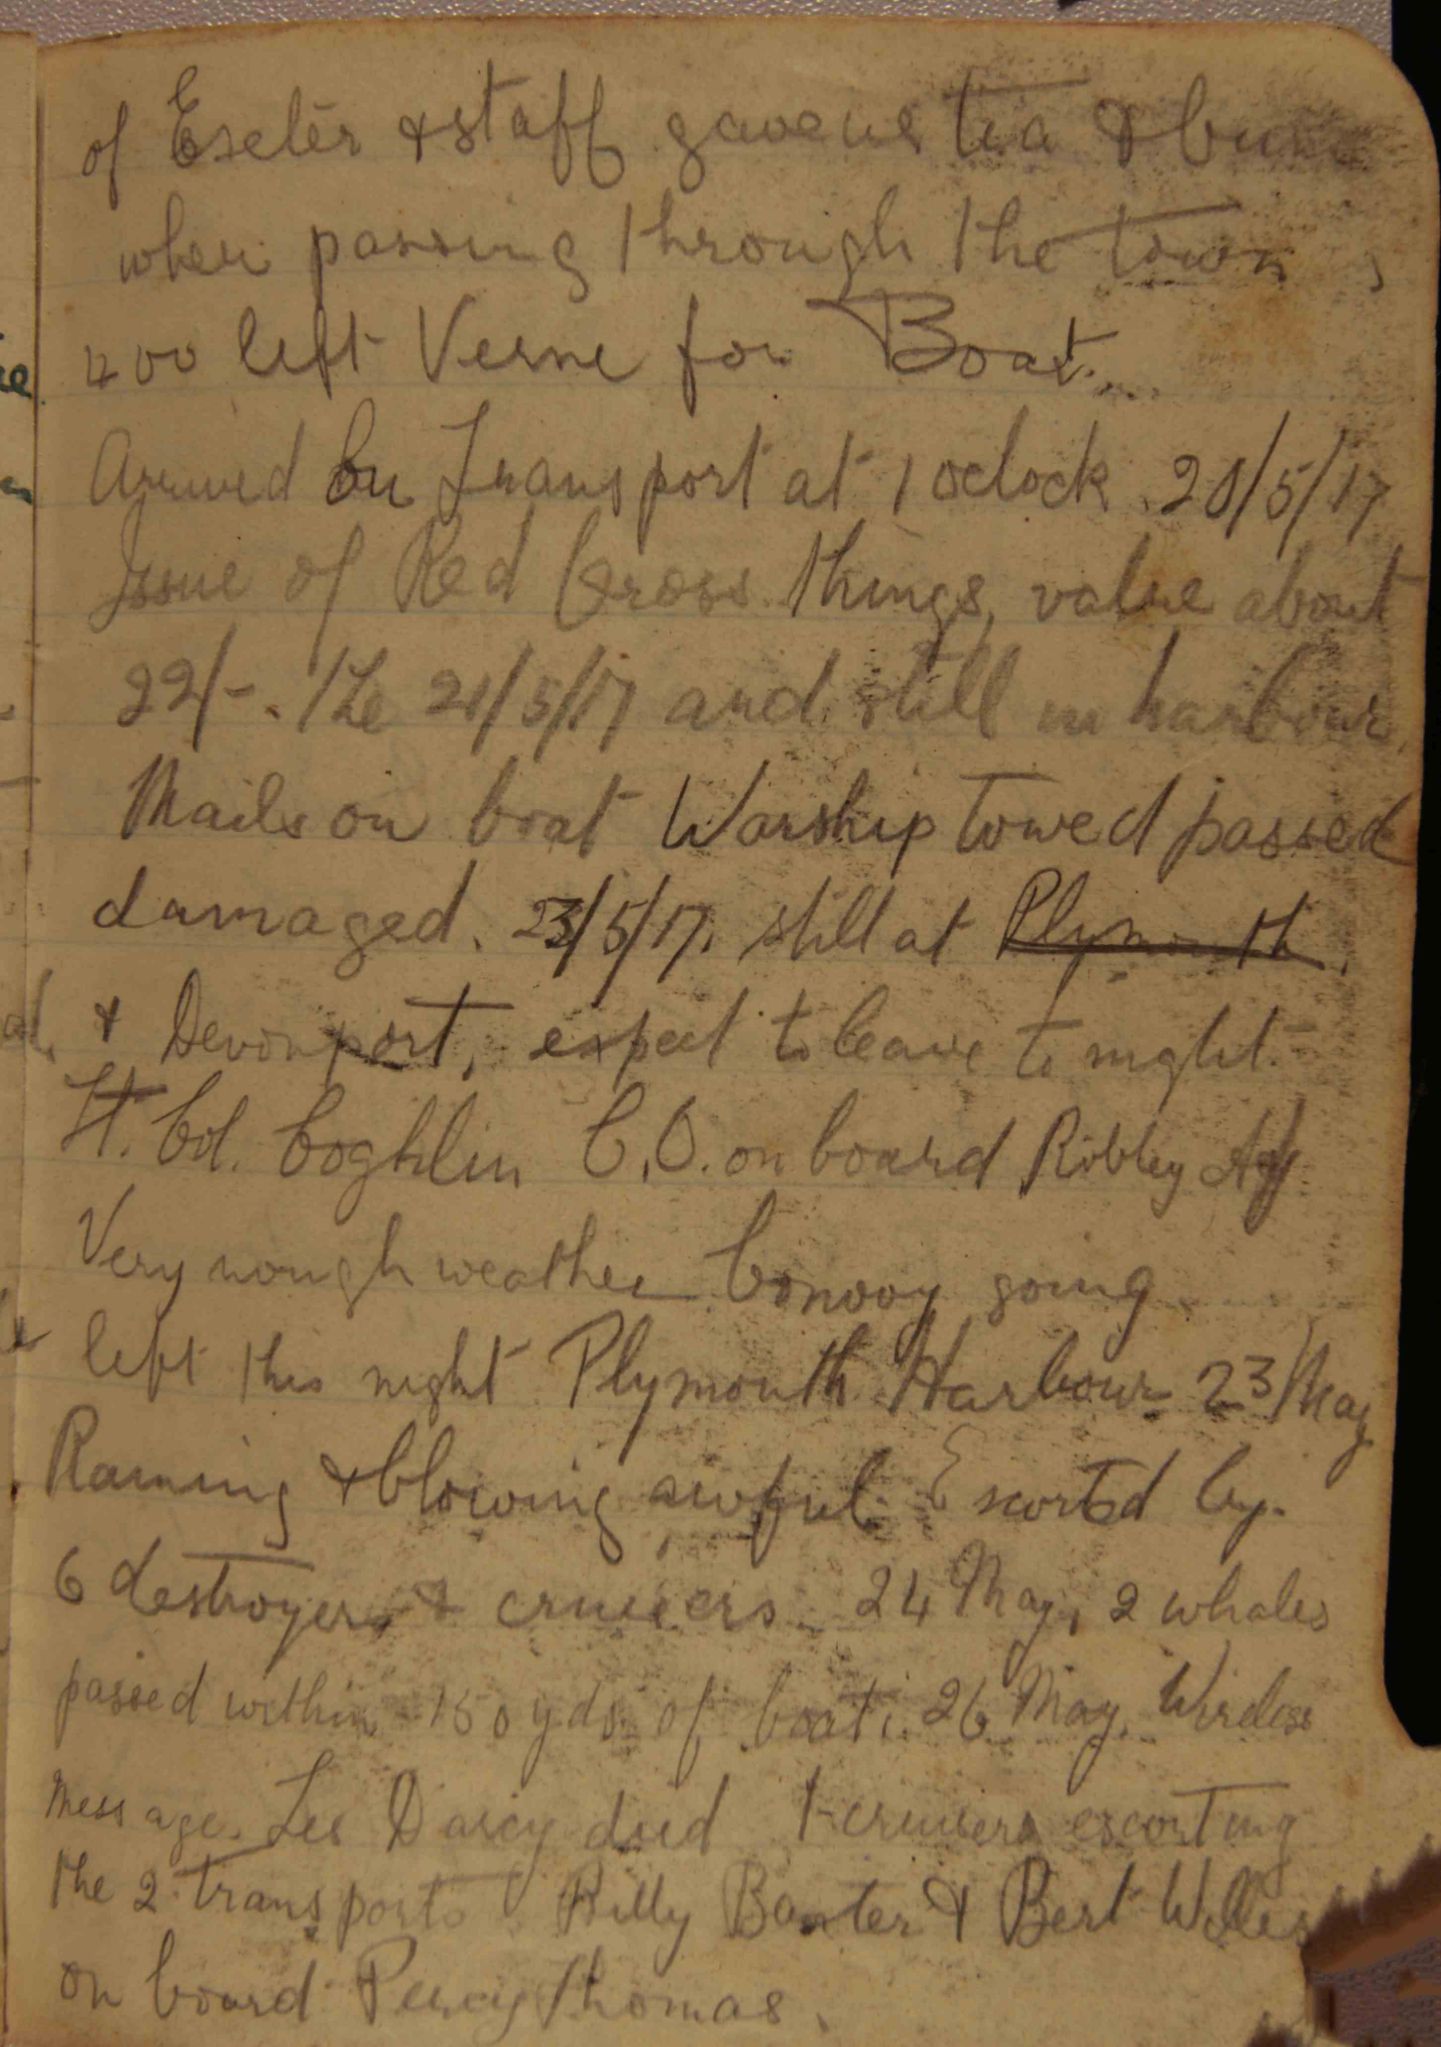 of Exeter & staff gave us tea & buns
when passing through the town,
400 left Verne for Boat.
Arrived on Transport at 1 oclock 20/5/17
Issue of Red Cross things, value about
22/-. The 21/5/17 and still in harbour.
Mails on boat Warship towed passed
damaged. 23/5/17. still at Plymouth
& Devonport, expect to leave to night.
Lt. Col. Coghlin C.O. on board Ribley Adj
Very rough weather Convoy going
left this night Plymouth Harbour 23 May
Raining & blowing awful Escorted by.
6 destroyers & cruisers 24 May, 2 whales
passed within 150 yds of boat, 26 May, Wireless
Message. Les Darcy died 1 cruisers escorting
the 2 transports Billy Baxter & Bert
on board Percy Thomas.